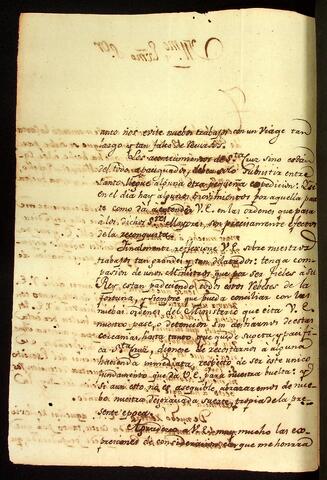 anto nos evite nuebos trabajos con un Viage tan
largo y tan falto de recursos.
Los acontecimientos de Sta Cruz sino están
del todo apaciguados, deben solo subsistir entre
tanto llegue alguna otra pequeña expedicion: Si
en el dia hay algunos movimientos por aquella par
te como da a entender V.E. en las ordenes que pasa
a los dichos Sres Mayores, son precisamente efectos
de la reconquista.
Finalmente reflexione V.E. sobre nuestros
trabajos tan grandes y tan dilatados: tenga com
pasion de unos Ministros que por ser fieles a Su
Rey, estan padeciendo todos los rebeses de la
fortuna, y siempre que pueda conciliar con las
nuebas ordenes del Ministerio que cita V.E.
nuestro pase, o detencion sin alejarnos de estas
cercanias hasta tanto que quede sugeta y pacifi
ca Sta Cruz, dignese de decretarlo a alguna
hacienda inmediata, respecto de ser este unico
fundamento que da V.E. para nuestra buelta: y
si aun esto no es asequible, abrazaremos de nue
bo nuestra desgraciada suerte, propia de la pre
sente epoca.
Agradezco a V.E. muy mucho las ex
presiones de consideracion con que me honrra